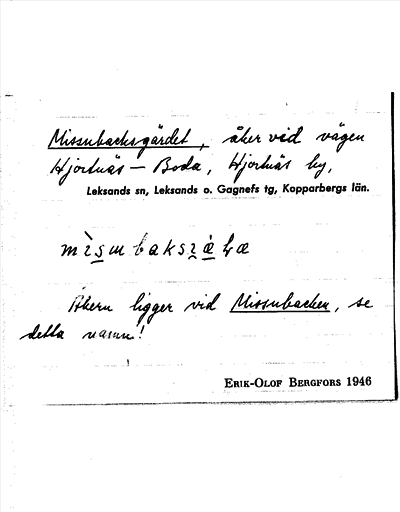 Missnbacksgärdet, åker vid vägen
Hjortnäs - Boda, Hjortnäs by,
Leksands sn, Leksands o. Gagnefs tg, Kopparbergs län.
Åkern ligger vid Missnbacken, se
detta namn!
ERIK-OLOF BERGFORS 1946